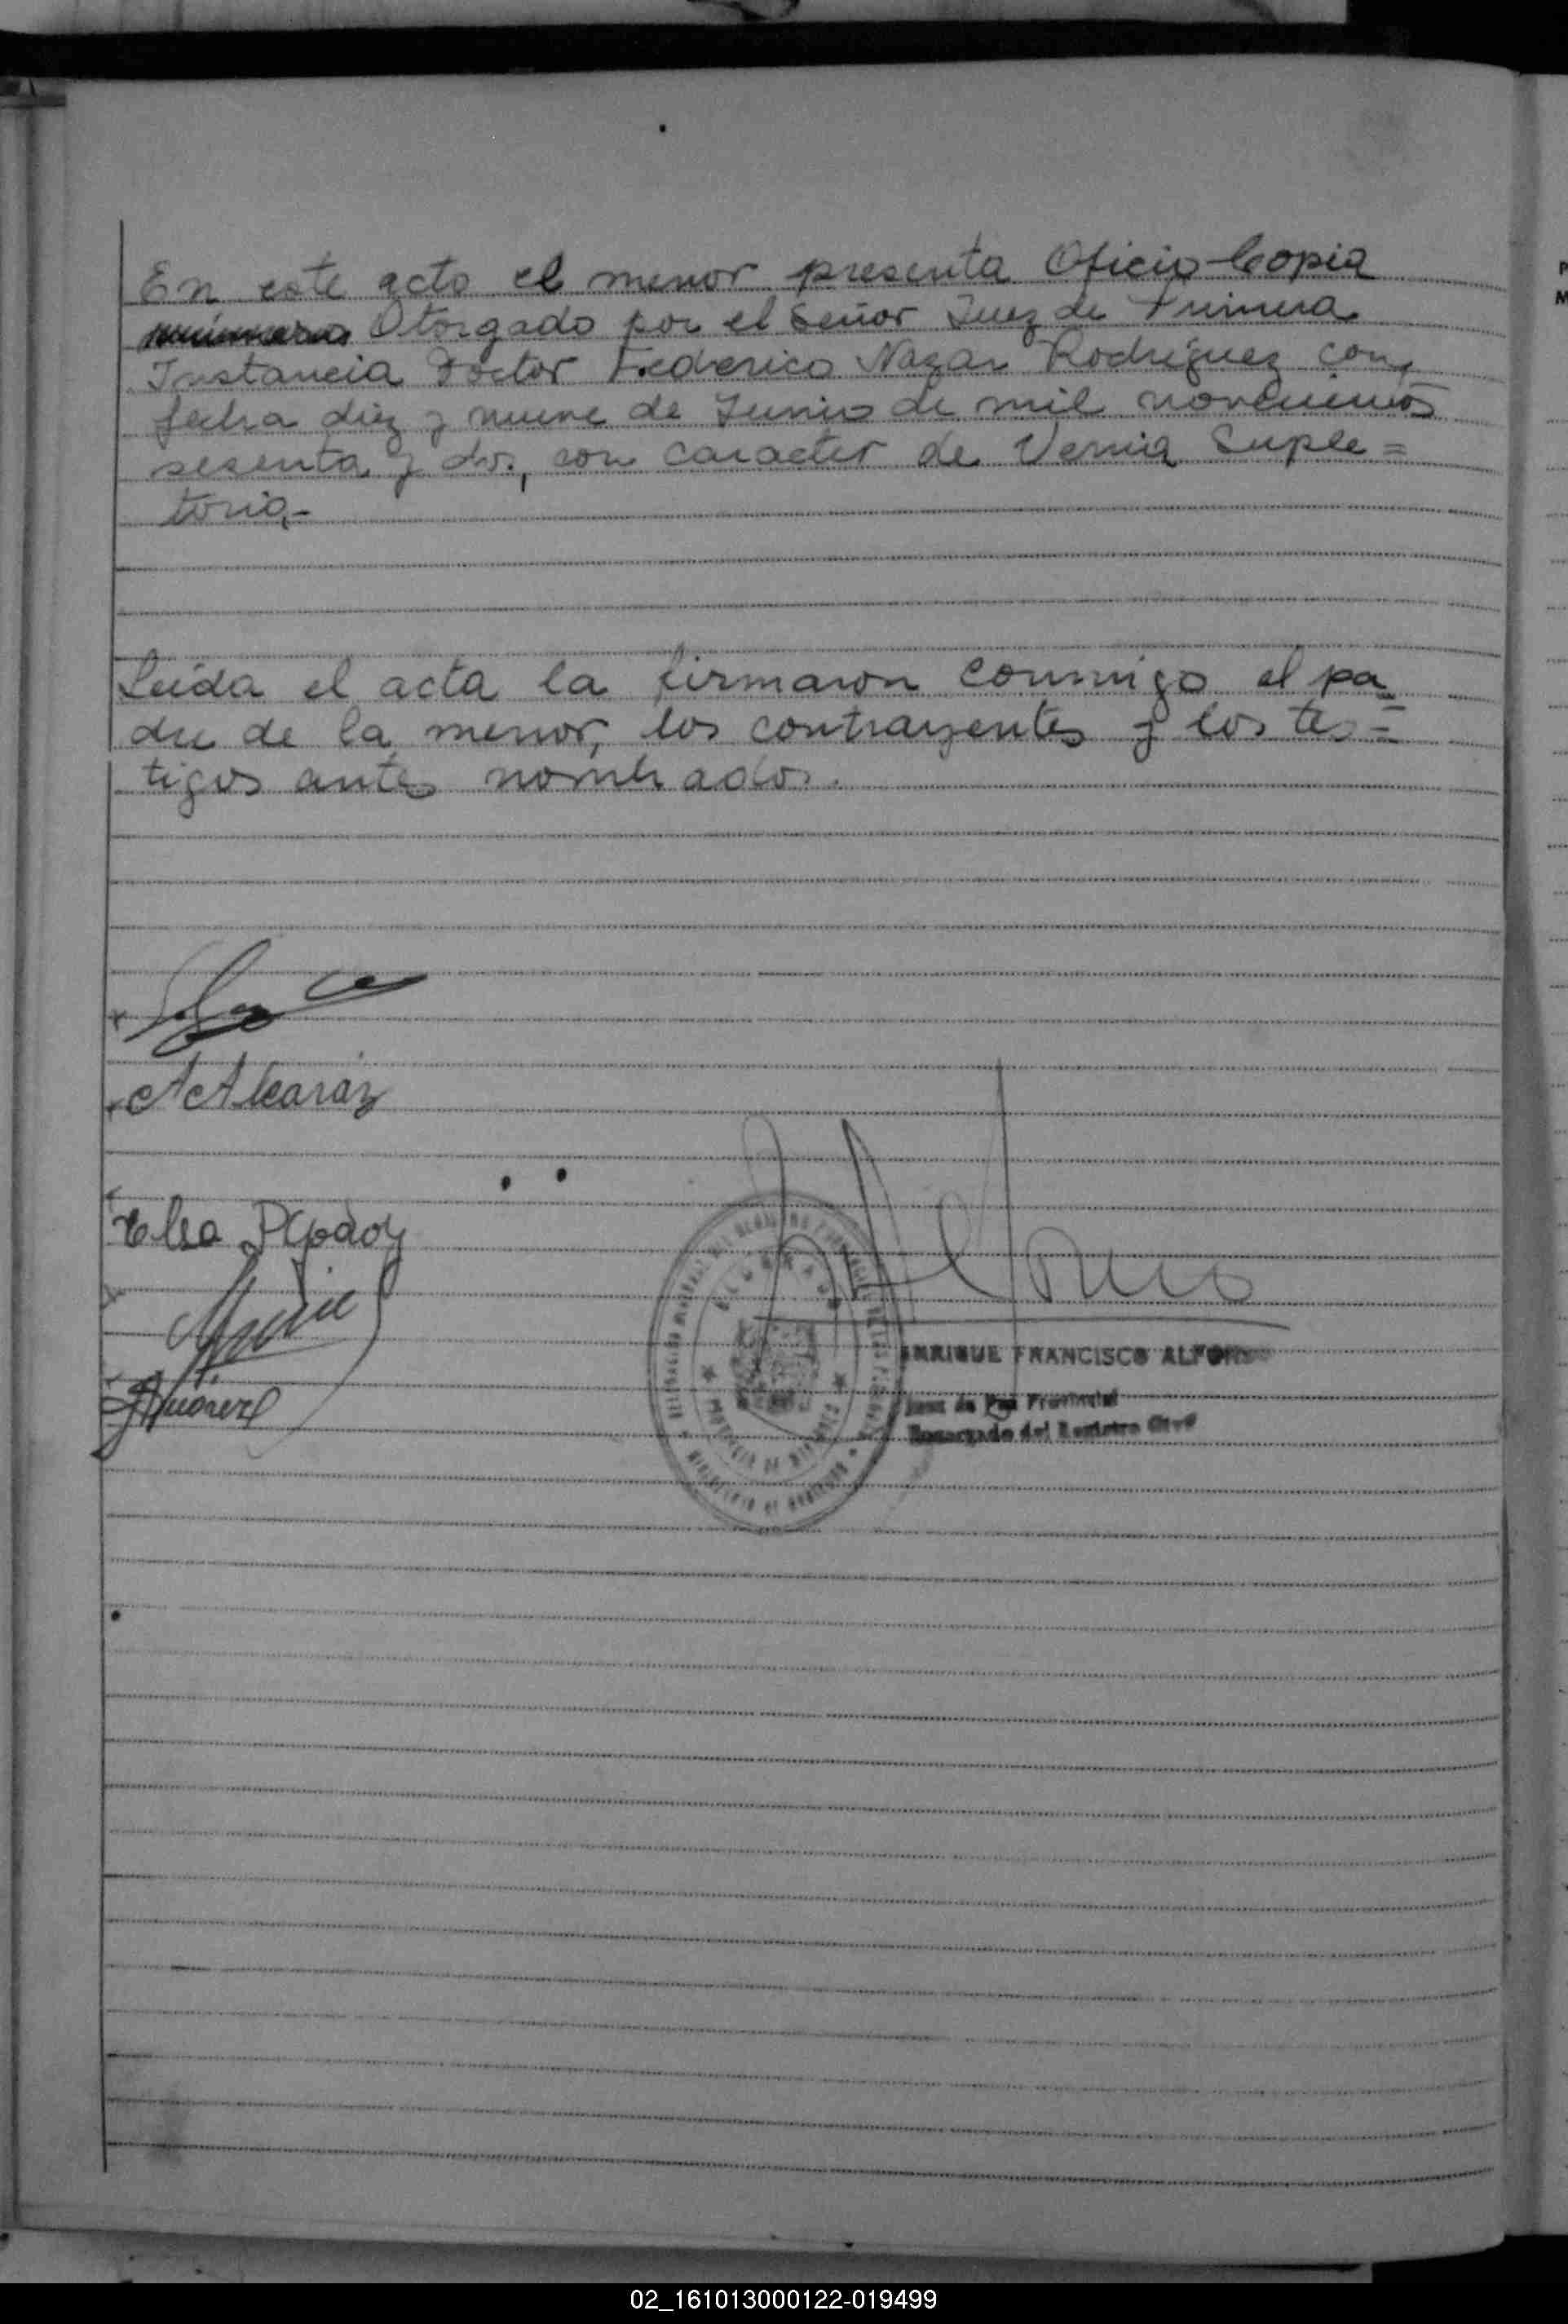 En este acto el menor presenta Oficio-Copia
Otorgado por el Señor Juez de Primera
Instancia Doctor Federico Nazar Rodríguez con
fecha diez y nueve de Junio de mil novecientos
sesenta y dos, con caracter de Venia Suple=
toria.-
Leída el acta la firmaron conmigo el pa-
dre de la menor, los contrayentes y los tes=
tigos antes nombrados.
A Alcaráz
Elsa
ENRIQUE FRANCISCO ALFONSO
Juez de Paz Provincial
Encargado del Registro Civil
02_161013000122-019499